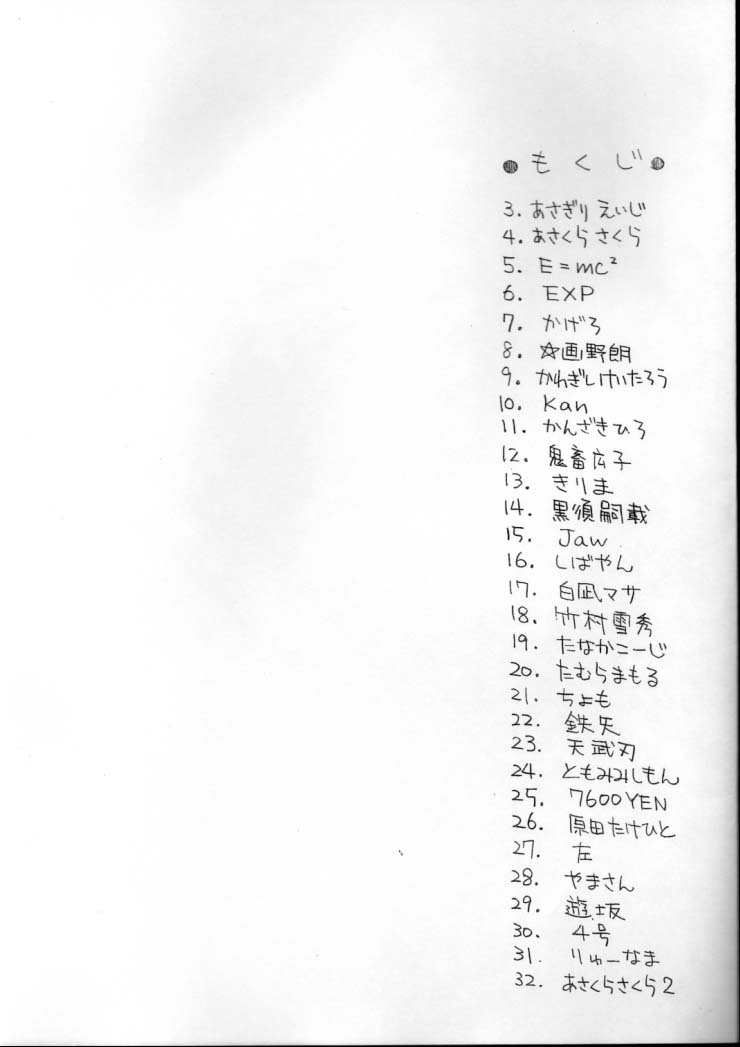 ●もくじ●
3. あさぎり えいじ
4. あさくら さくら
5. E=mc²
6. EXP
7. かげろ
8. ☆画野朗
9. かわぎしけいたろう
10. Kan
11. かんざきひろ
12. 鬼畜広子
13. きりま
14. 黒須嗣載
15. Jaw
16. しばやん
17. 白凪マサ
18. 竹村雪秀
19. たなかこーじ
20. たむらまもる
21. ちょも
22. 鉄矢
23. 天武刃
24. ともみみしもん
25. 7600YEN
26. 原田たけひと
27. 左
28. やまさん
29. 遊坂
30. 4号
31. りゅーなま
32. あさくらさくら2